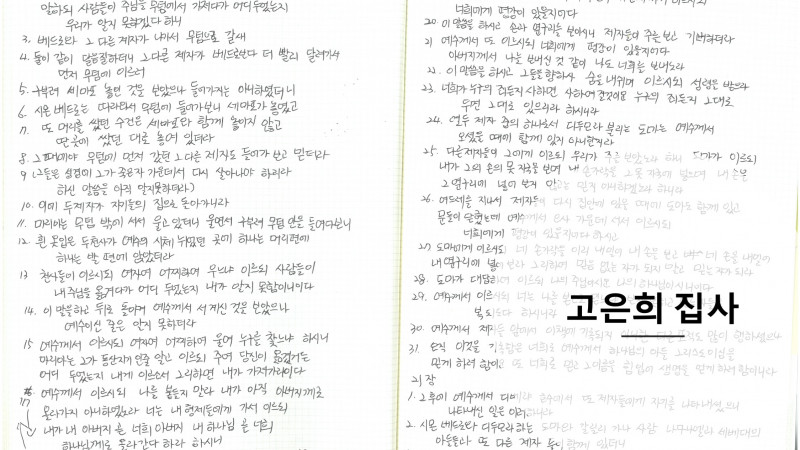 말하되 사람들이 주님을 무덤에서 가져다가 어디 두었는지
우리가 알지 못하겠다 하니
3. 베드로와 그 다른 제자가 나가서 무덤으로 갈새
4. 둘이 같이 달음질하더니 그 다른 제자가 베드로보다 더 빨리 달려가서
먼저 무덤에 이르러
5. 구부려 세마포 놓인 것을 보았으나 들어가지는 아니하였더니
6. 시몬 베드로는 따라와서 무덤에 들어가 보니 세마포가 놓였고
7. 또 머리를 쌌던 수건은 세마포와 함께 놓이지 않고
딴 곳에 쌌던 대로 놓여 있더라
8. 그때에야 무덤에 먼저 갔던 그 다른 제자도 들어가 보고 믿더라
9. (그들은 성경에 그가 죽은 자 가운데서 다시 살아나야 하리라
하신 말씀을 아직 알지 못하더라)
10. 이에 두 제자가 자기들의 집으로 돌아가니라
11. 마리아는 무덤 밖에 서서 울고 있더니 울면서 구부려 무덤 안을 들여다보니
12. 흰 옷 입은 두 천사가 예수의 시체 뉘었던 곳에 하나는 머리 편에
하나는 발 편에 앉았더라
13. 천사들이 이르되 여자여 어찌하여 우느냐 이르되 사람들이
내 주님을 옮겨다가 어디 두었는지 내가 알지 못함이니이다
14. 이 말을 하고 뒤로 돌이켜 예수께서 서 계신 것을 보았으나
예수이신 줄은 알지 못하더라
15 예수께서 이르시되 여자여 어찌하여 울며 누구를 찾느냐 하시니
마리아는 그가 동산지기인 줄 알고 이르되 주여 당신이 옮겼거든
어디 두었는지 내게 이르소서 그리하면 내가 가져가리이다
예수께서 이르시되 나를 붙들지 말라 내가 아직 아버지께로
17
올라가지 아니하였노라 너는 내 형제들에게 가서 이르되
내가 내 아버지 곧 너희 아버지 내 하나님 곧 너희
하나님께로 올라간다 하라 하시니
너희에게 평강이 있을지어다
20. 이 말씀을 하시고 손과 옆구리를 보이시니 제자들이 주를 보고 기뻐하더라
21 예수께서 또 이르시되 너희에게 평강이 있을지어다
아버지께서 나를 보내신 것 같이 나도 너희를 보내노라
22. 이 말씀을 하시고 그들을 향하사 숨을 내쉬며 이르시되 성령을 받으라
23. 너희가 누구의 죄든지 사하면 사하여질 것이요 누구의 죄든지 그대로
두면 그대로 있으리라 하시니라
24. 열두 제자 중의 하나로서 디두모라 불리는 도마는 예수께서
오셨을 때에 함께 있지 아니한지라
25. 다른 제자들이 그에게 이르되 우리가 주를 보았노라 하니 도마가 이르되
내가 그의 손의 못 자국을 보며 내 손가락을 그 못 자국에 넣으며 내 손을
그 옆구리에 넣어 보지 않고는 믿지 아니하겠노라 하니라
26. 여드레를 지나서 제자들이 다시 집 안에 있을 때에 도마도 함께 있고
문들이 닫혔는데 예수께서 오사 가운데 서서 이르시되
너희에게 평강이 있을지어다 하시고
27 도마에게 이르시되 네 손가락을 이리 내밀어 내 손을 보고 네 손을 내밀어
내 옆구리에 넣어 보라 그리하여 믿음 없는 자가 되지 말고 믿는 자가 되라
28. 도마가 대답하여 이르되 나의 주님이시요 나의 하나님이시니이다
29. 예수께서 이르시되 너는 나를 본
복되도다 하시니라
고은희 집사
30. 예수께서 제자들 앞에서 이 책에 기록되지 아니한 다른 표적도 많이 행하셨으나
31. 오직 이것을 기록함은 너희로 예수께서 하나님의 아들 그리스도이심을
믿게 하려 함이요 또 너희로 믿고 그 이름을 힘입어 생명을 얻게 하려 함이니라
21장
1. 그 후에 예수께서 디베랴 호수에서 또 제자들에게 자기를 나타내셨으니
나타내신 일은 이러하니라
2. 시몬 베드로와 디두모라 하는 도마와 갈릴리 가나 사람 나다나엘과 세베대의
아들들과 또 다른 제자 둘이 함께 있더니